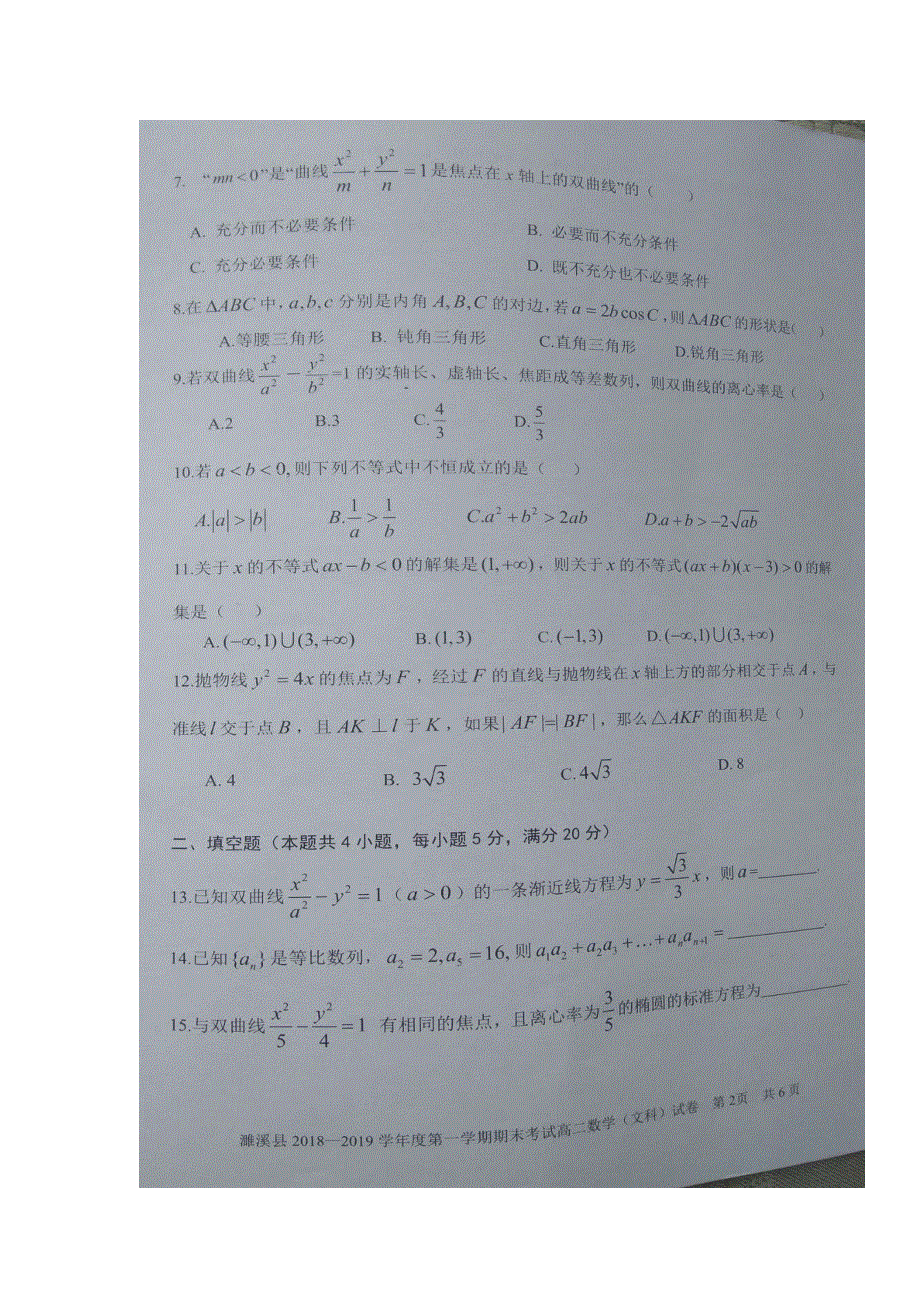 7. “mn<0”是“曲线 x²/m + y²/n = 1是焦点在 x 轴上的双曲线”的（ ）
A. 充分而不必要条件 B. 必要而不充分条件
C. 充分必要条件 D. 既不充分也不必要条件
8.在 ΔABC 中, a,b,c 分别是内角 A,B,C 的对边,若 a = 2b cos C ,则 ΔABC 的形状是( )
A.等腰三角形 B. 钝角三角形 C.直角三角形 D.锐角三角形
9.若双曲线 x²/a² － y²/b² =1 的实轴长、虚轴长、焦距成等差数列，则双曲线的离心率是（ ）
A.2 B.3 C. 4/3 D. 5/3
10.若 a < b < 0, 则下列不等式中不恒成立的是（ ）
A.|a| > |b| B. 1/a > 1/b C.a² + b² > 2ab D.a + b > −2√ab
11.关于 x 的不等式 ax − b < 0 的解集是 (1,+∞)，则关于 x 的不等式 (ax + b)(x − 3) > 0 的解
集是（ ）
A. (−∞,1)∪(3,+∞) B. (1,3) C. (−1,3) D. (−∞,1)∪(3,+∞)
12.抛物线 y² = 4x 的焦点为 F ，经过 F 的直线与抛物线在 x 轴上方的部分相交于点 A，与
准线 l 交于点 B ，且 AK ⊥ l 于 K ，如果| AF |=| BF |，那么△AKF 的面积是（ ）
A. 4 B. 3√3 C. 4√3 D. 8
二、填空题（本题共 4 小题，每小题 5 分，满分 20 分）
13.已知双曲线 x²/a² − y² = 1（ a > 0 ）的一条渐近线方程为 y = √3/3 x，则 a =______.
14.已知 {aₙ} 是等比数列， a₂ = 2, a₅ = 16, 则 a₁a₂ + a₂a₃ + … + aₙaₙ₊₁ = ______.
15.与双曲线 x²/5 − y²/4 = 1 有相同的焦点，且离心率为 3/5 的椭圆的标准方程为______.
濉溪县 2018—2019 学年度第一学期期末考试高二数学（文科）试卷 第 2页 共 6 页